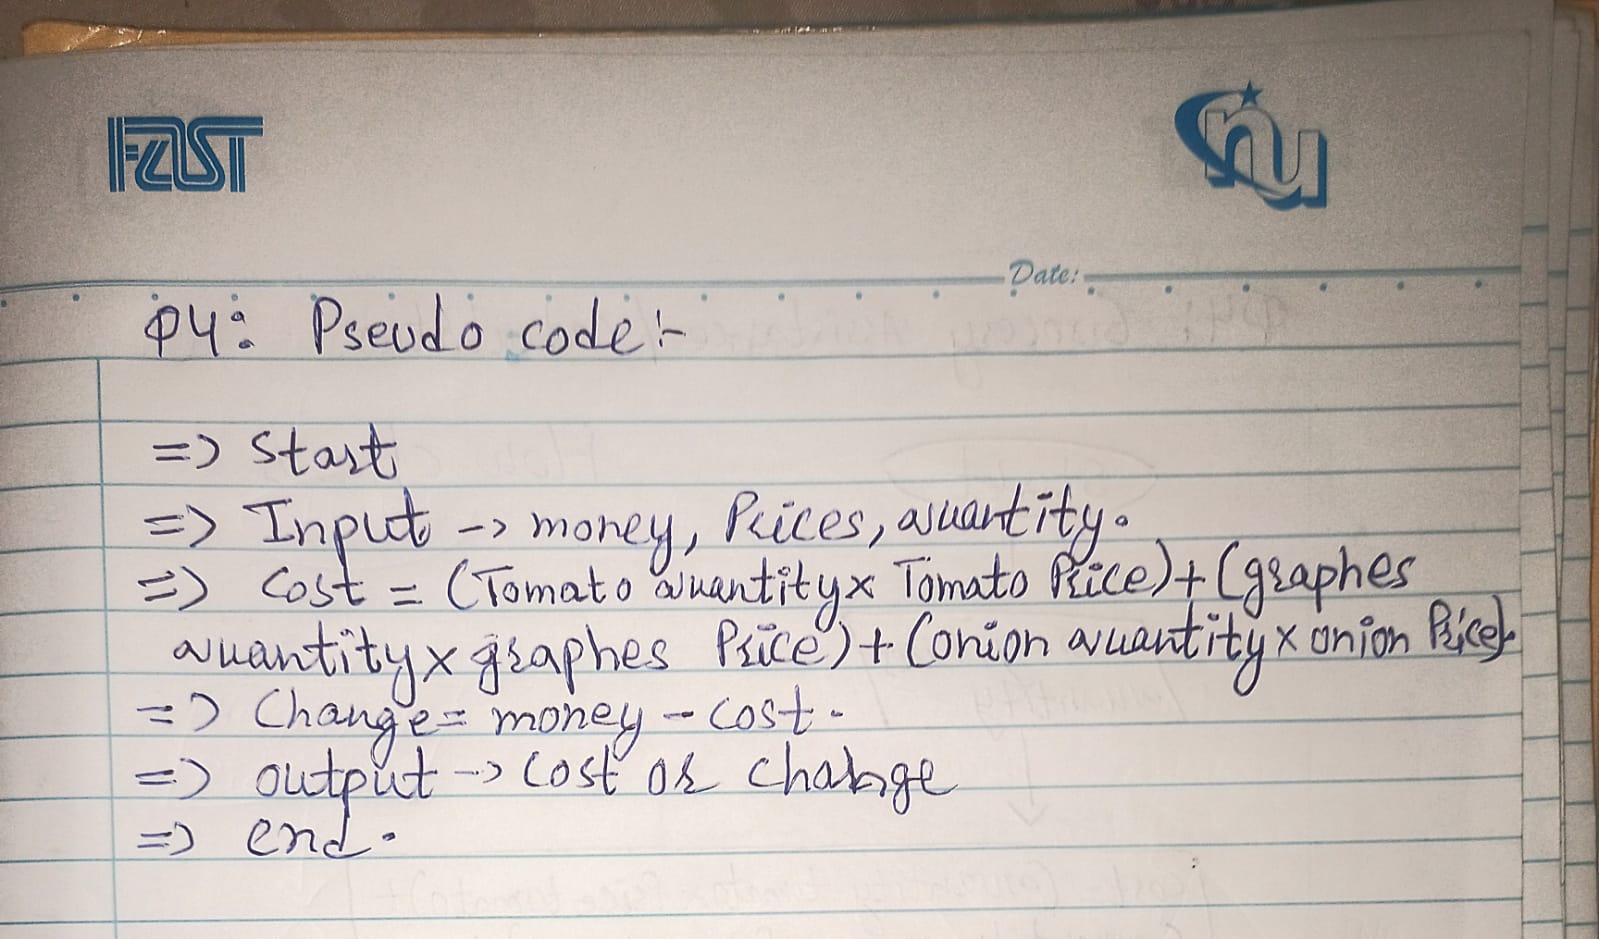 FAST
nu
Date:
P4: Pseudo code:-
=> Start
=> Input -> money, Prices, quantity.
=> Cost = (Tomato quantity x Tomato Price) + (graphes
quantity x graphes Price) + (onion quantity x onion Price).
=> Change = money - cost.
=> output -> Cost or change
=> end.